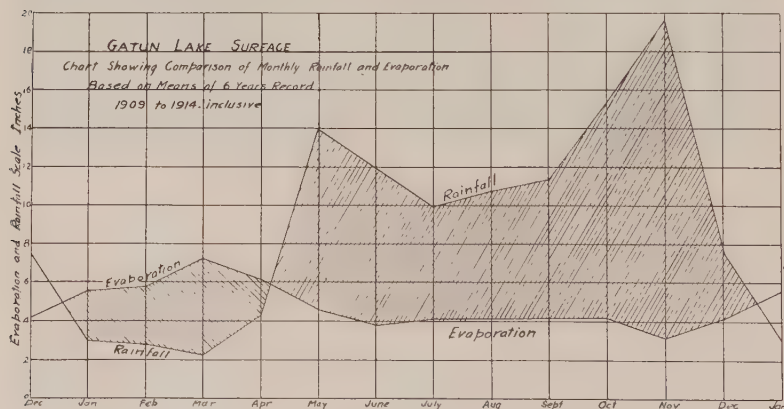 GATUN LAKE SURFACE
Chart Showing Comparison of Monthly Rainfall and Evaporation
Based on Means of 6 Years Record
1909 to 1914. inclusive
Evaporation and Rainfall Scale Inches
20
18
16
14
12
10
8
6
4
2
0
Rainfall
Evaporation
Rainfall
Evaporation
Dec Jan Feb Mar Apr May June July Aug Sept Oct Nov Dec